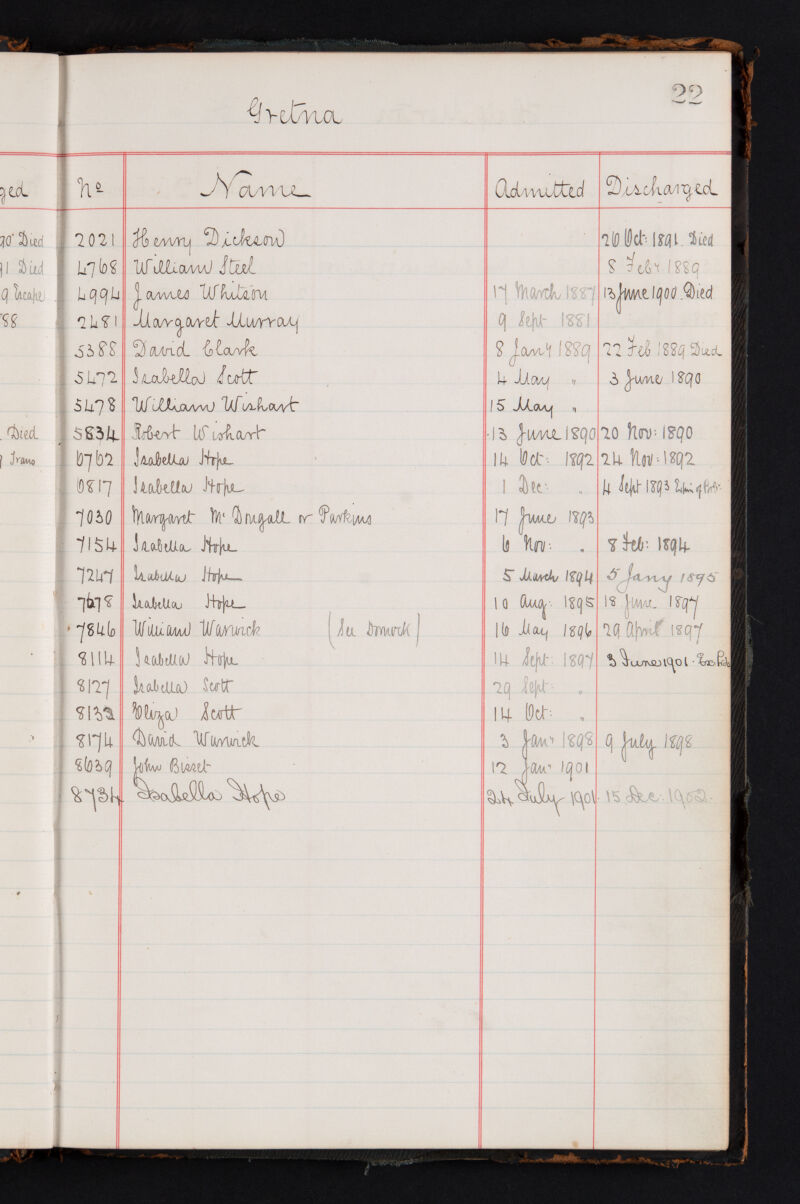 22
Gretna
ged No Name Admitted Discharged
Died 2021 Henry Dickson 20 Oct: 1891. Died
Died 4768 William Steel 8 Feby 1889
4994 James Whitson 17 March 1887 13 June 1900. Died
88 2481 Margaret Murray 9 Sept 1881
5388 David Clark 8 Jany 1889 22 Feb 1889 Died
5472 Isabella Scott 4 May " 3 June 1890
5478 William Wishart 15 May "
Died 5834 Robert Wishart 13 June 1890 20 Nov: 1890
Trans 6762 Isabella Hope 14 Oct: 1892 24 Nov: 1892
6817 Isabella Hope 1 Dec: " 4 Sept 1893
7030 Margaret Mc Dougall or Parkins 17 June 1893
7154 Isabella Hope 6 Nov: " 8 Feb: 1894
7247 Isabella Hope 5 March 1894 5 Jany 1895
7678 Isabella Hope 10 Aug: 1895 18 June 1897
7846 William Warwick (See Dornock) 16 May 1896 29 April 1897
8114 Isabella Hope 14 Sept: 1897 3 June 1901.
8127 Isabella Scott 29 Sept: "
8132 Eliza Scott 14 Oct: "
8174 David Warwick 3 Jany 1898 9 July 1898
8639 John Bisset 12 Jany 1901
8734 Isabella Hope 24 July 1901 15 Dec: 1902.